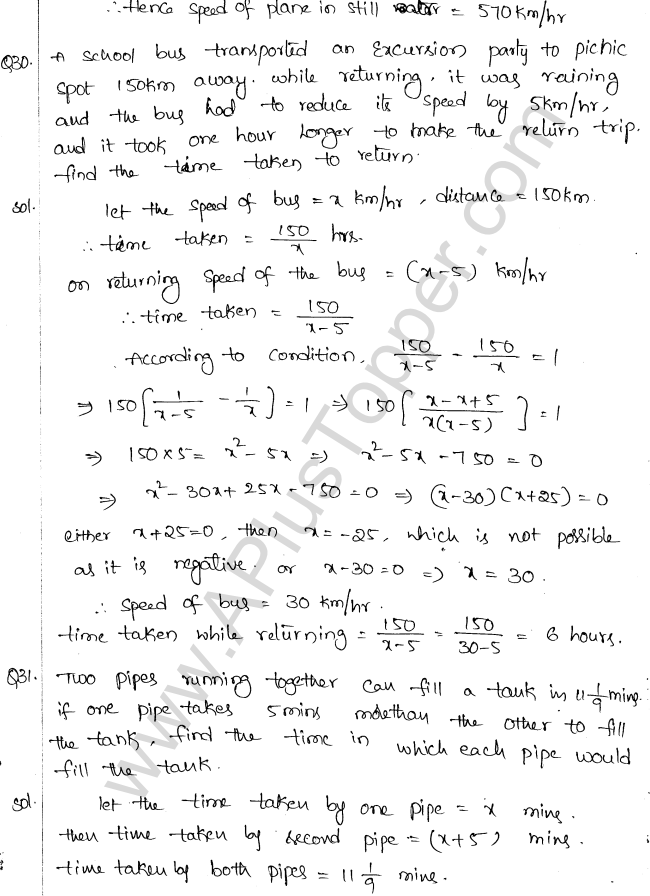 ∴ Hence speed of plane in still = 570 km/hr
Q30. A school bus transported an Excursion party to pichic
spot 150km away. while returning, it was raining
and the bus had to reduce its speed by 5km/hr,
and it took one hour longer to make the return trip.
find the time taken to return.
Sol. let the speed of bus = x km/hr, distance = 150km.
∴ time taken = 150/x hrs.
on returning speed of the bus = (x-5) km/hr
∴ time taken = 150/(x-5)
According to condition, 150/(x-5) - 150/x = 1
⇒ 150[1/(x-5) - 1/x] = 1 ⇒ 150[(x-x+5)/(x(x-5))] = 1
⇒ 150×5 = x² - 5x ⇒ x² - 5x - 750 = 0
⇒ x² - 30x + 25x - 750 = 0 ⇒ (x-30)(x+25) = 0
either x+25=0, then x = -25, which is not possible
as it is negative. or x-30=0 ⇒ x = 30.
∴ speed of bus = 30 km/hr.
time taken while returning = 150/(x-5) = 150/(30-5) = 6 hours.
Q31. Two pipes running together can fill a tank in 11 1/9 mins.
if one pipe takes 5 mins more than the other to fill
the tank, find the time in which each pipe would
fill the tank.
Sol. let the time taken by one pipe = x mins.
then time taken by second pipe = (x+5) mins.
time taken by both pipes = 11 1/9 mins.
www.APlusTopper.com